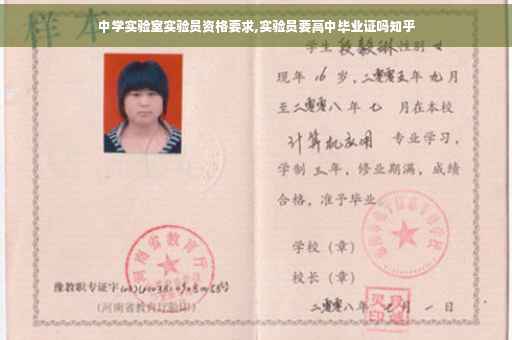 样本
中学实验室实验员资格要求,实验员要高中毕业证吗知乎
学生 段毅琳 性别 女
现年 16 岁,二零零五年 九 月
至二零零八年 七 月在本校
计算机应用 专业学习,
学制 三 年,修业期满,成绩
合格,准予毕业
学校(章)
校长(章)
二零零八年 月 一 日
河南省教育厅
豫教职专证字
(河南省教育厅验印)